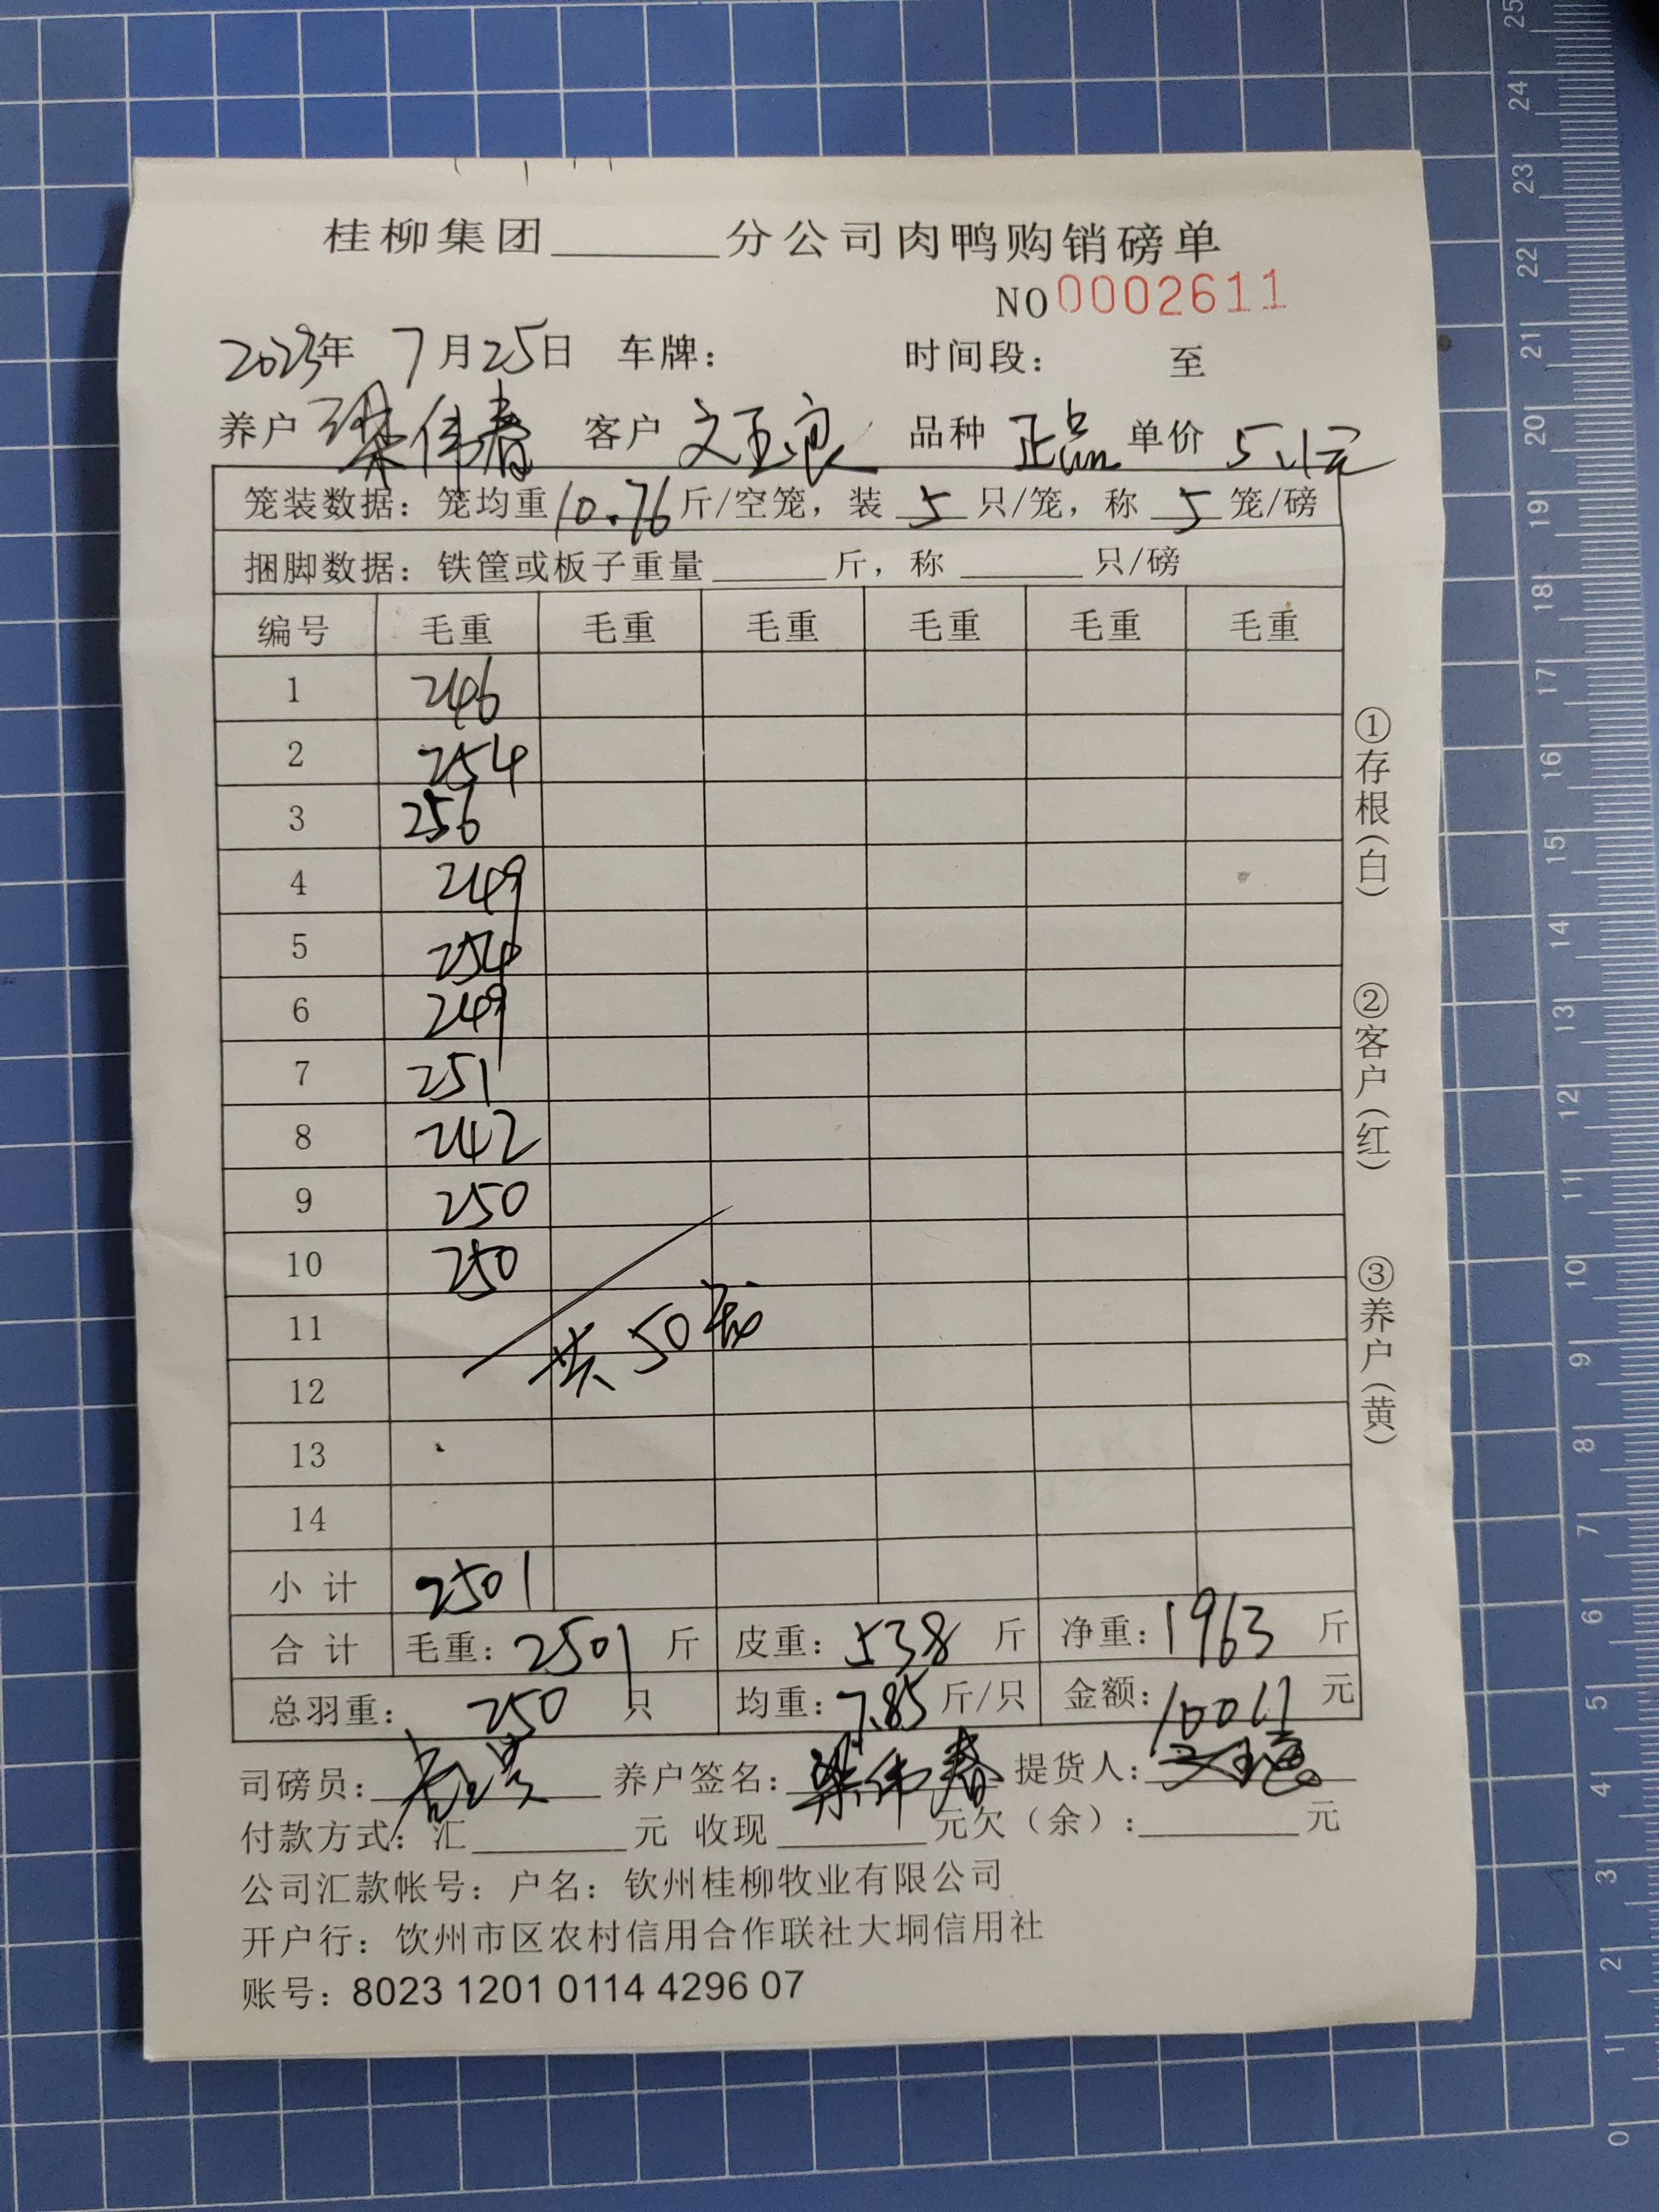 桂柳集团______分公司肉鸭购销磅单
NO 0002611
2023年 7月25日 车牌： 时间段： 至
养户 梁伟春 客户 文玉良 品种 正品 单价 5.1元
笼装数据：笼均重10.76斤/空笼，装 5 只/笼，称 5 笼/磅
捆脚数据：铁筐或板子重量______斤，称______只/磅
编号 毛重 毛重 毛重 毛重 毛重 毛重
1 246
2 254
3 256
4 249
5 254
6 249
7 251
8 242
9 250
10 250
11
共50
12
13
14
小计 2501
合计 毛重：2501斤 皮重：538斤 净重：1963斤
总羽重：250只 均重：7.85斤/只 金额：10011元
司磅员： 养户签名：梁伟春 提货人：
付款方式：汇______元 收现______元欠（余）：______元
公司汇款帐号：户名：钦州桂柳牧业有限公司
开户行：饮州市区农村信用合作联社大垌信用社
账号：8023 1201 0114 4296 07
①存根(白)
②客户(红)
③养户(黄)
25
24
23
22
21
20
19
18
17
16
15
14
13
12
11
10
9
8
7
6
5
4
3
2
1
0